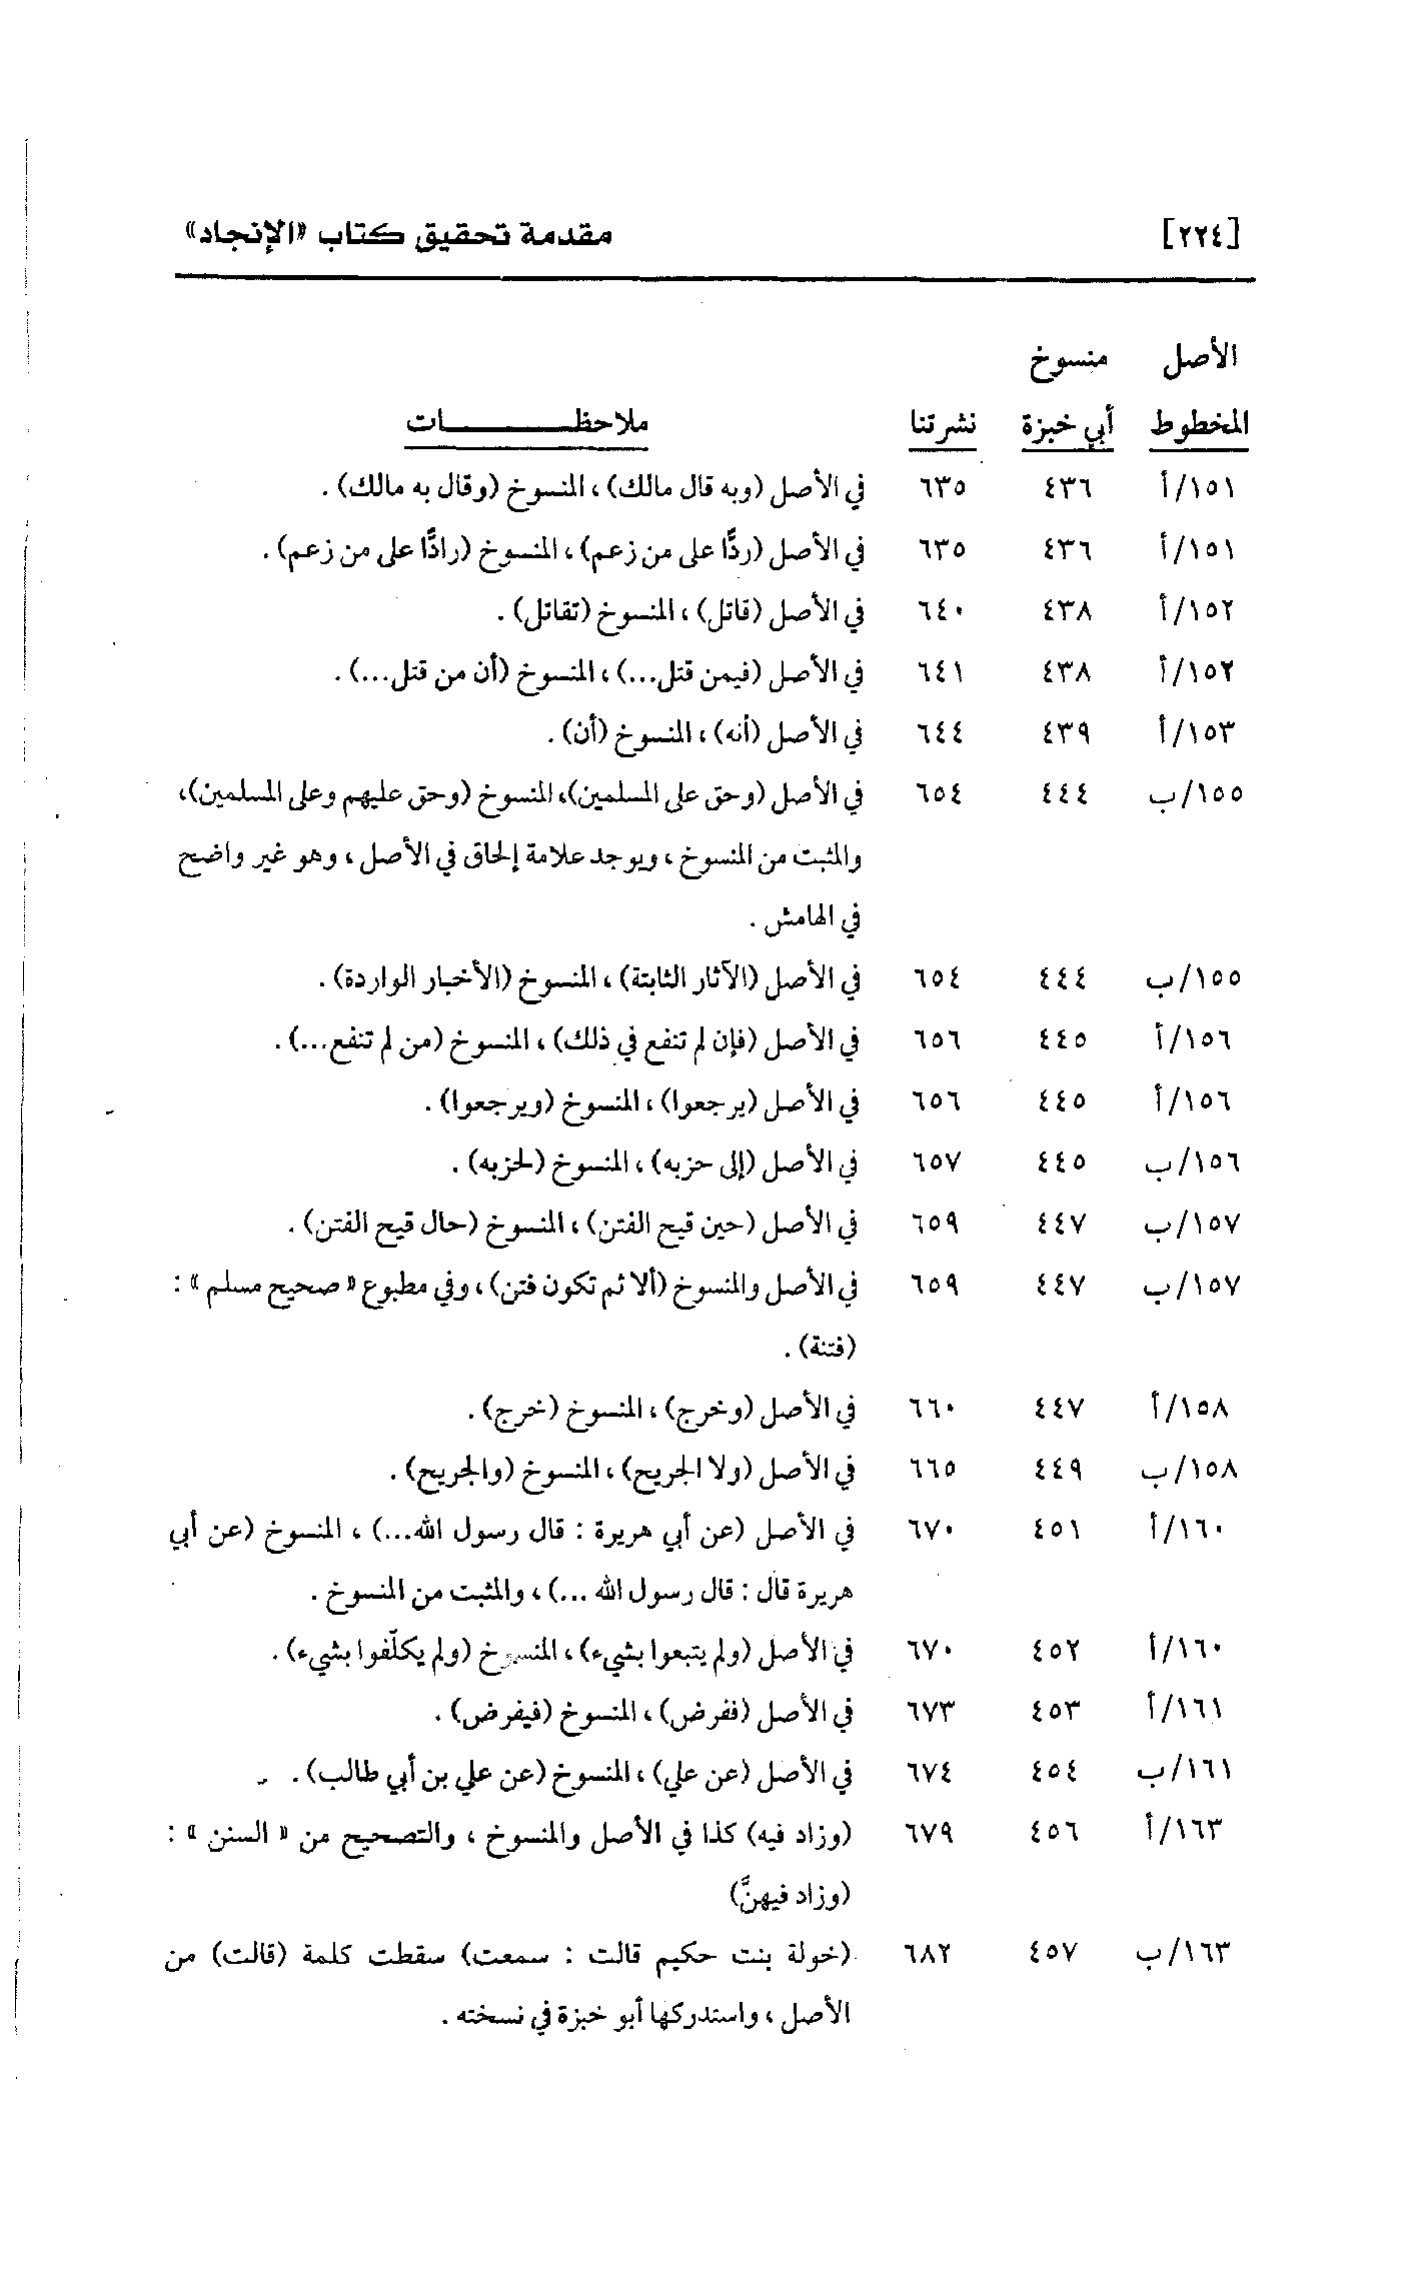 [٢٢٤] مقدمة تحقيق كتاب «الإنجاد»
الأصل منسوخ
المخطوط أبي خبزة نشرتنا ملاحظـــــــات
١٥١/أ ٤٣٦ ٦٣٥ في الأصل (وبه قال مالك)، المنسوخ (وقال به مالك).
١٥١/أ ٤٣٦ ٦٣٥ في الأصل (ردًّا على من زعم)، المنسوخ (رادًّا على من زعم).
١٥٢/أ ٤٣٨ ٦٤٠ في الأصل (قاتل)، المنسوخ (تقاتل).
١٥٢/أ ٤٣٨ ٦٤١ في الأصل (فيمن قتل...)، المنسوخ (أن من قتل...).
١٥٣/أ ٤٣٩ ٦٤٤ في الأصل (أنه)، المنسوخ (أن).
١٥٥/ب ٤٤٤ ٦٥٤ في الأصل (وحق على المسلمين)، المنسوخ (وحق عليهم وعلى المسلمين)،
والمثبت من المنسوخ، ويوجد علامة إلحاق في الأصل، وهو غير واضح
في الهامش.
١٥٥/ب ٤٤٤ ٦٥٤ في الأصل (الآثار الثابتة)، المنسوخ (الأخبار الواردة).
١٥٦/أ ٤٤٥ ٦٥٦ في الأصل (فإن لم تنفع في ذلك)، المنسوخ (من لم تنفع...).
١٥٦/أ ٤٤٥ ٦٥٦ في الأصل (يرجعوا)، المنسوخ (ويرجعوا).
١٥٦/ب ٤٤٥ ٦٥٧ في الأصل (إلى حزبه)، المنسوخ (لحزبه).
١٥٧/ب ٤٤٧ ٦٥٩ في الأصل (حين قيح الفتن)، المنسوخ (حال قيح الفتن).
١٥٧/ب ٤٤٧ ٦٥٩ في الأصل والمنسوخ (ألا ثم تكون فتن)، وفي مطبوع «صحيح مسلم»:
(فتنة).
١٥٨/أ ٤٤٧ ٦٦٠ في الأصل (وخرج)، المنسوخ (خرج).
١٥٨/ب ٤٤٩ ٦٦٥ في الأصل (ولا الجريح)، المنسوخ (والجريح).
١٦٠/أ ٤٥١ ٦٧٠ في الأصل (عن أبي هريرة : قال رسول الله...)، المنسوخ (عن أبي
هريرة قال : قال رسول الله ...)، والمثبت من المنسوخ.
١٦٠/أ ٤٥٢ ٦٧٠ في الأصل (ولم يتبعوا بشيء)، المنسوخ (ولم يكلّفوا بشيء).
١٦١/أ ٤٥٣ ٦٧٣ في الأصل (ففرض)، المنسوخ (فيفرض).
١٦١/ب ٤٥٤ ٦٧٤ في الأصل (عن علي)، المنسوخ (عن علي بن أبي طالب).
١٦٣/أ ٤٥٦ ٦٧٩ (وزاد فيه) كذا في الأصل والمنسوخ، والتصحيح من «السنن»:
(وزاد فيهنَّ)
١٦٣/ب ٤٥٧ ٦٨٢ (خولة بنت حكيم قالت : سمعت) سقطت كلمة (قالت) من
الأصل، واستدركها أبو خبزة في نسخته.